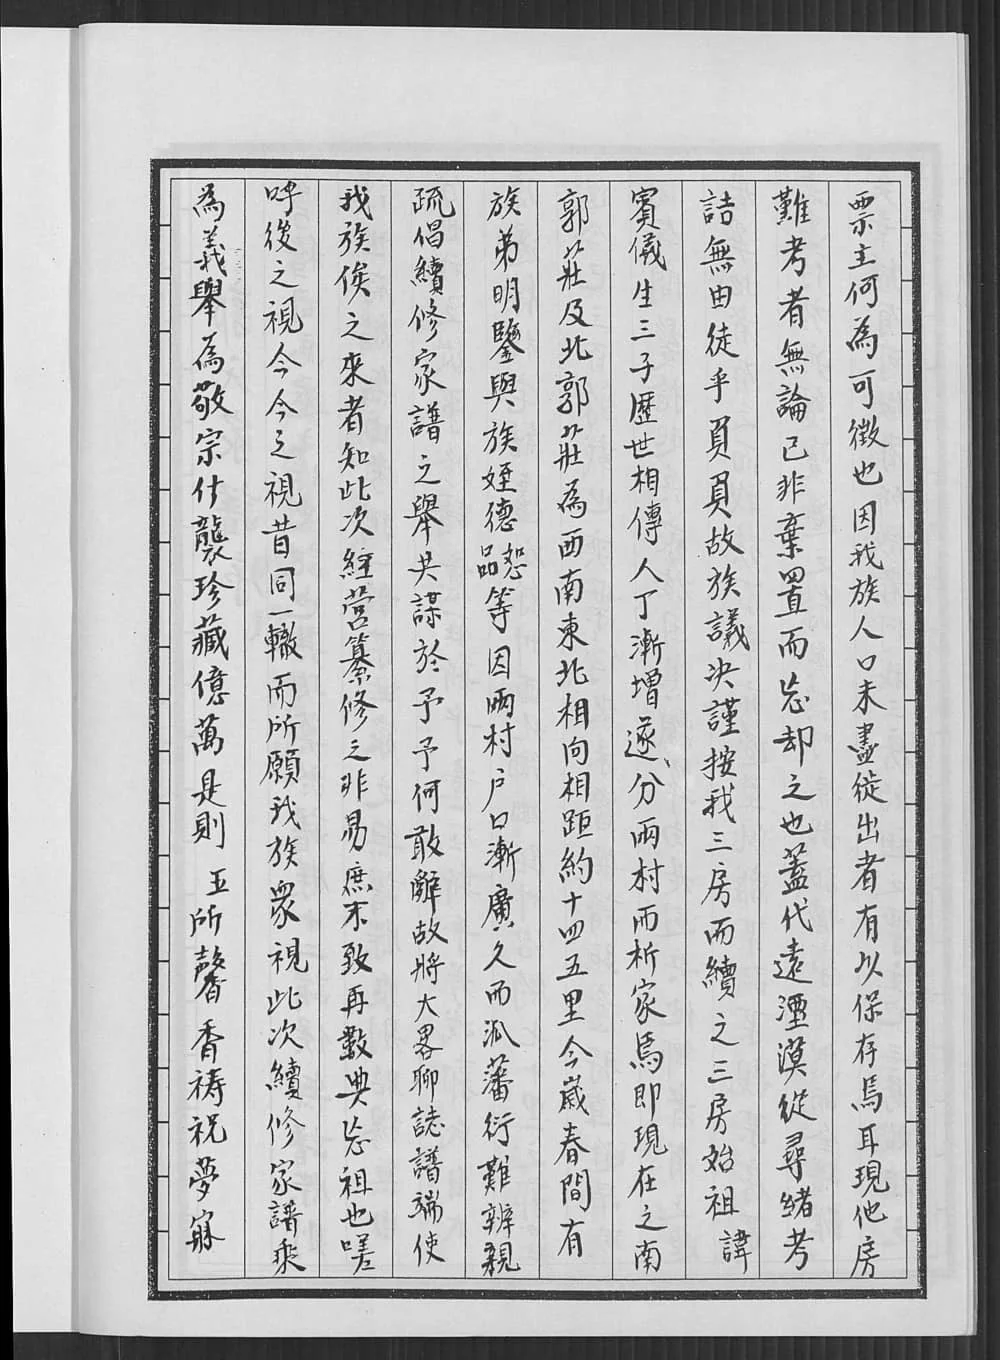 票主何為可徵也因我族人口未盡從出者有以保存焉耳現他房
難考者無論已非棄置而忘却之也蓋代遠湮漠從尋緒考
詰無由徒乎員員故族議決謹按我三房而續之三房始祖 諱
賓儀生三子歷世相傳人丁漸增遂分兩村而析家焉即現在之南
郭莊及北郭莊為西南東北相向相距約十四五里今歲春間有
族弟明鑒與族姪德恕品等因兩村户口漸廣久而派蕃衍難辨親
疏倡續修家譜之舉共謀於予予何敢辭故將大畧聊誌譜端使
我族俟之來者知此次經營纂修之非易庶不致再數典忘祖也嗟
呼後之視今今之視昔同一轍而所願我族衆視此次續修家譜乘
為義舉為敬宗什襲珍藏億萬是則 玉所馨香禱祝夢寐